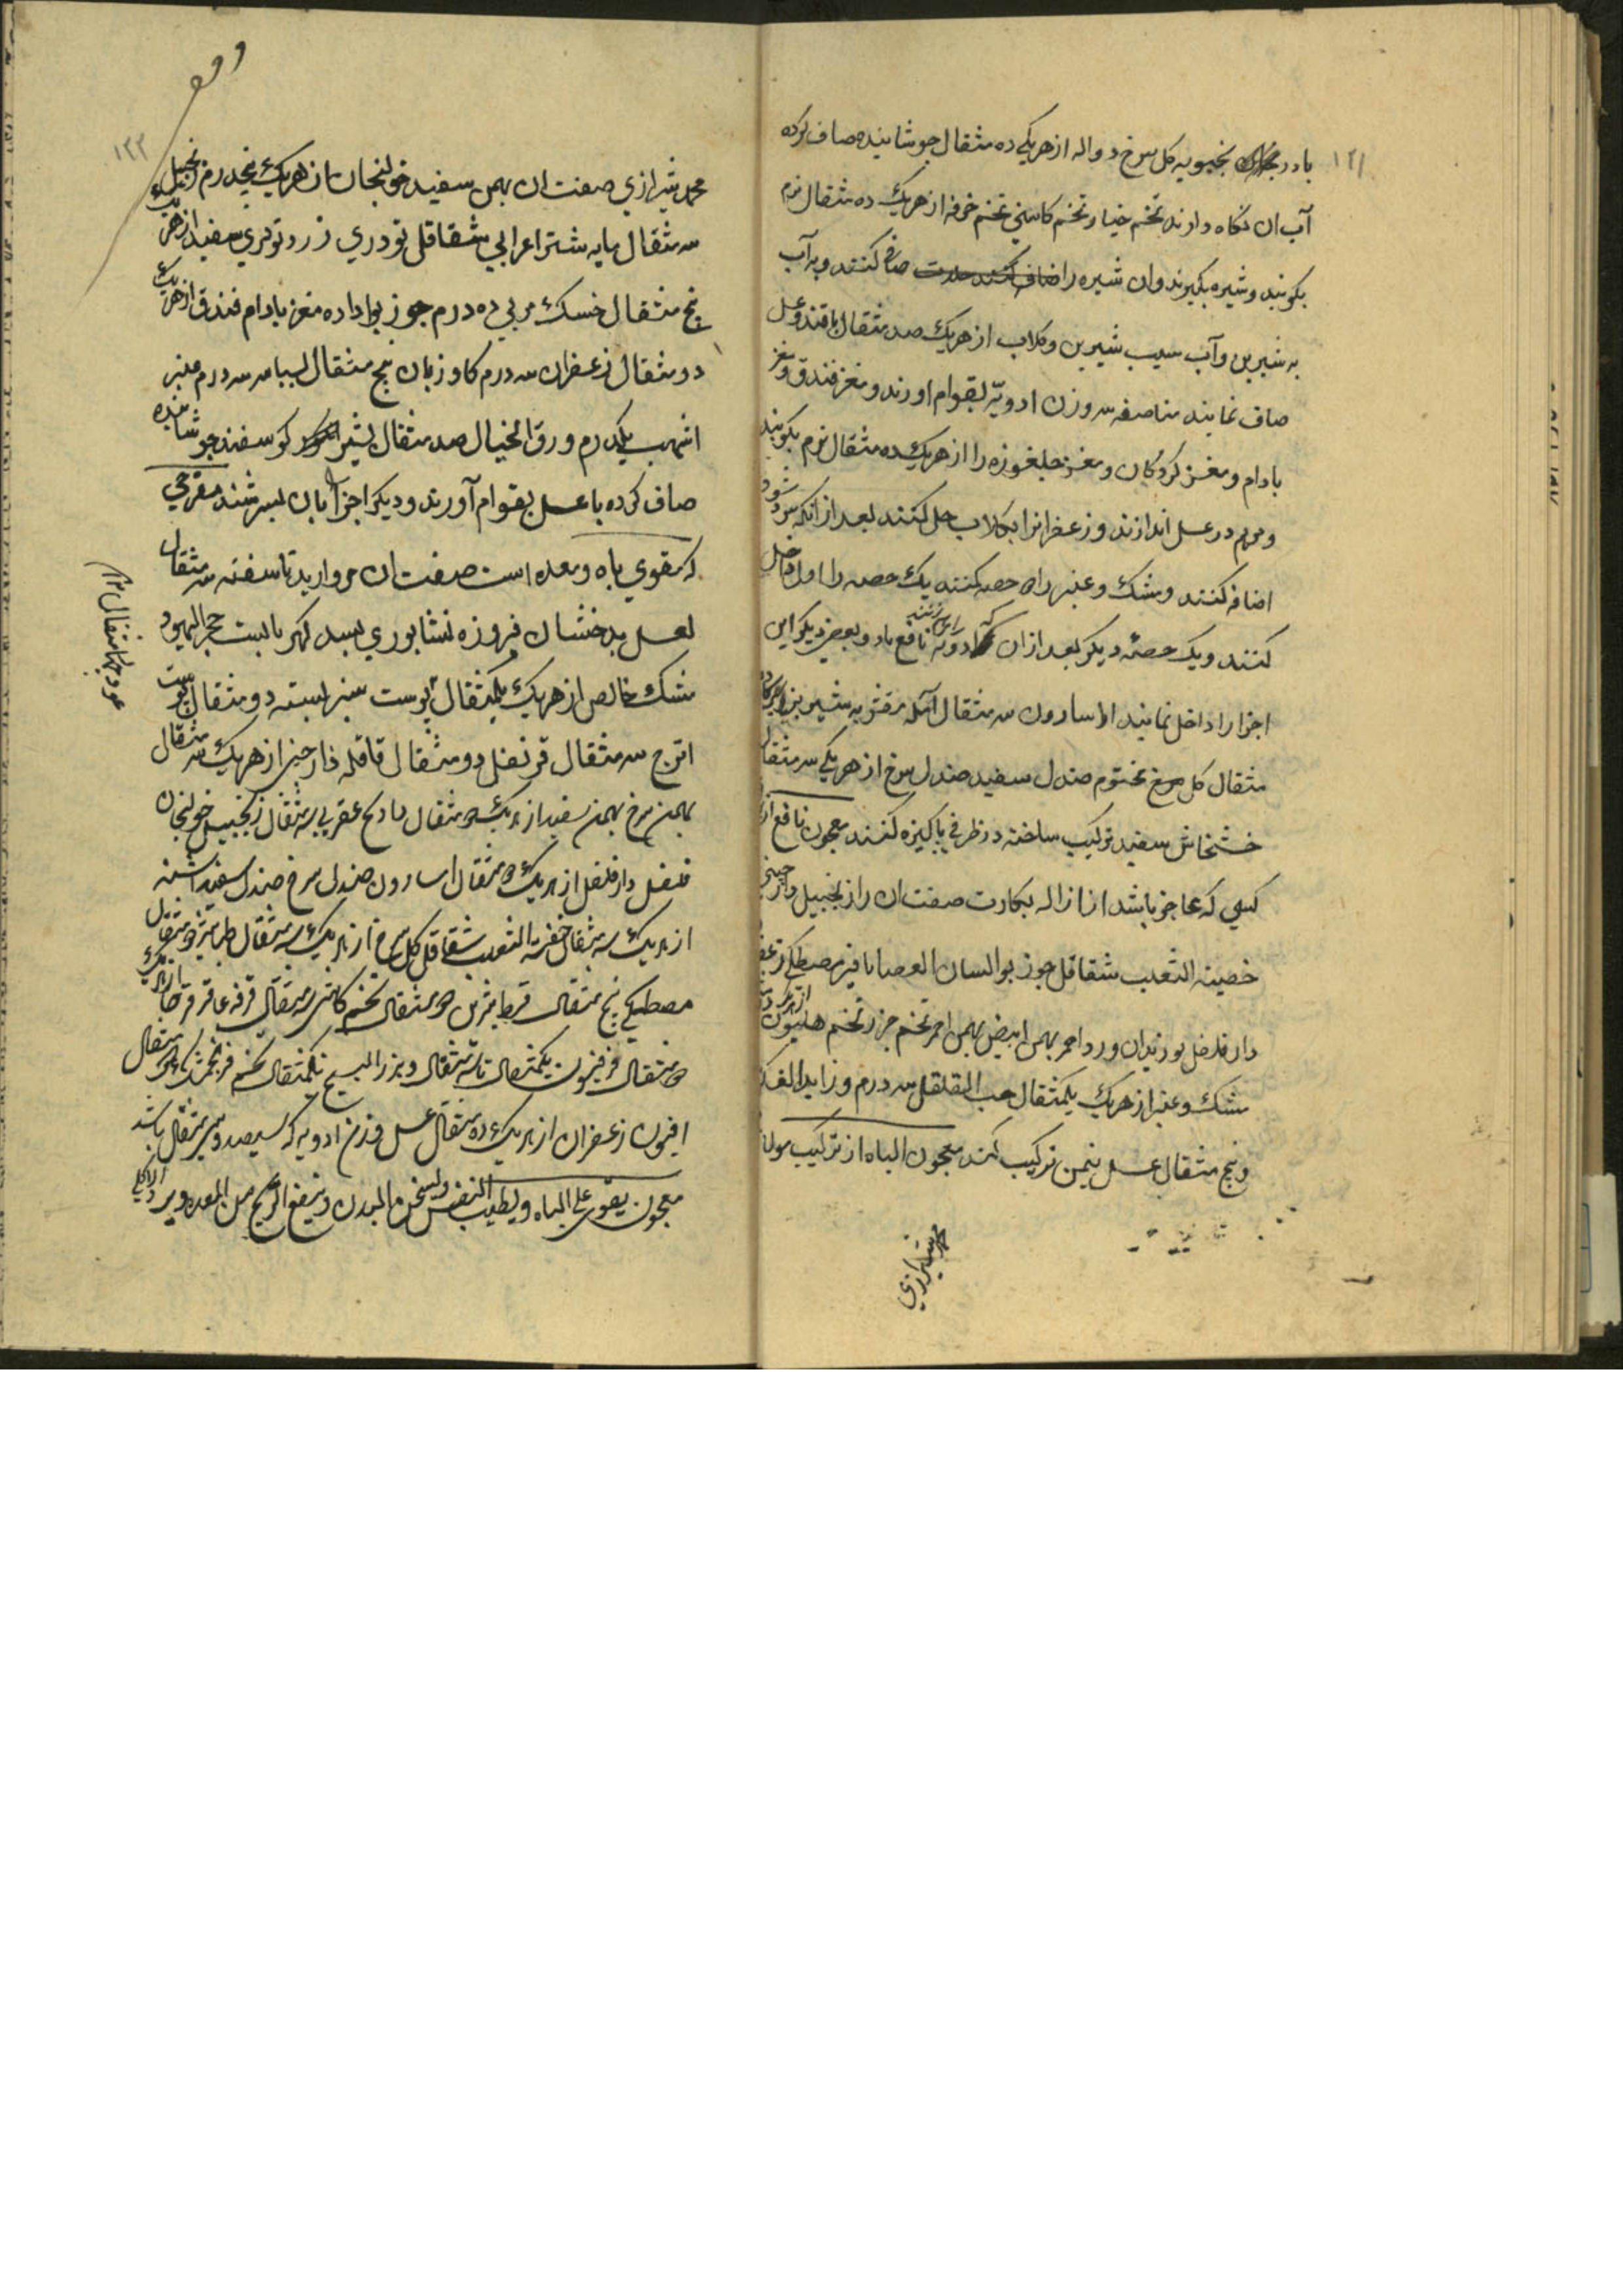 ۱۲۱
بادرنجبویه کل سرخ دواله از هریکی ده مثقال جوشانیده صاف کرده
آب ان نکاه دارند تخم خیار و تخم کاسنی تخم خرفه از هریک ده مثقال نرم
بکوبند و شیره بکیرند وان شیره را صاف کنند و به آب
به شیرین وآب سیب شیرین وکلاب از هریک صد مثقال با قند و عسل
صاف نمایند مناصفه سه وزن ادویه بقوام اورند و مغز فندق و مغز
بادام و مغز کردکان و مغز جلغوزه را از هریک ده مثقال نرم بکوبند
در عسل اندازند و زعفرانرا بکلاب حل کنند بعد از انکه سرد شود
اضافه کنند و مشک و عنبر را حصه کنند یک حصه را اول داخل
کنند ویک حصه دیکر بعد از ان که
اجزا را داخل نمایند اسارون سه مثقال آمله مقشر
مثقال کل مختوم صندل سفید صندل سرخ از هریکی سه مثقال
خشخاش سفید ترکیب ساخته در ظرفی پاکیزه کنند معجون نافع از
کسی که عاجز باشد از ازاله بکارت صفت ان رازنجبیل دارچینی
خصیته الثعلب شقاقل جوز بوا لسان العصافیر مصطکی زعفر
دارفلفل بوزیدان ورد احمر بهمن ابیض بهمن احمر تخم جزر تخم هلیون
مشک و عنبر از هریک یکمثقال حب القلقل سه درم
و پنج مثقال عسل بثمن ترکیب کند معجون الباه از ترکیب مولانا
محمد شیرازی
۱۲۲
محمد شیرازی صفت ان بهمن سفید خولنجان از هریک پنجدرم زنجبیل
سه مثقال مایه شتر اعرابی شقاقل تودری زرد تودری سفید از هریک
پنج مثقال خسک مربی ده درم جوز بوا مغز بادام فندق از هریک
دو مثقال زعفران سه درم کاوزبان پنج مثقال بسباسه سه درم عنبر
اشهب یکدرم و ورق الخیال صد مثقال بشیر کوسفند جوشانیده
صاف کرده با عسل بقوام آورند و دیکر اجزا بان بسرشند مفرحی
که مقوی باه و معده است صفت ان مروارید ناسفته سه مثقال
لعل بدخشان فیروزه نشابوری بسد کهربا لبست حجر الیهود
مشک خالص از هریک یکمثقال پوست سبز پسته دو مثقال پوست
اترج سه مثقال قرنفل دو مثقال قاقله دارچینی از هریک سه مثقال
بهمن سرخ بهمن سفید از هریک دو مثقال عقربی سه مثقال زنجبیل خولنجان
فلفل دارفلفل از هریک دو مثقال اسارون صندل سرخ صندل سفید اشنه
از هریک سه مثقال خصیة الثعلب شقاقل کل سرخ از هریک سه مثقال
مصطکی پنج مثقال دو مثقال تخم کاسنی سه مثقال قرفه عاقرقرحا از هریک
دو مثقال فرفیون یکمثقال تا سه مثقال و بزر البنج یکمثقال تخم فرنجمشک دو مثقال
افیون زعفران از هریک ده مثقال عسل وزن ادویه که سیصد و سی مثقال باشد
معجون یقوی علی الباه و یطیب النفس و یسخن البدن و ینفع الریح من المعده
عود